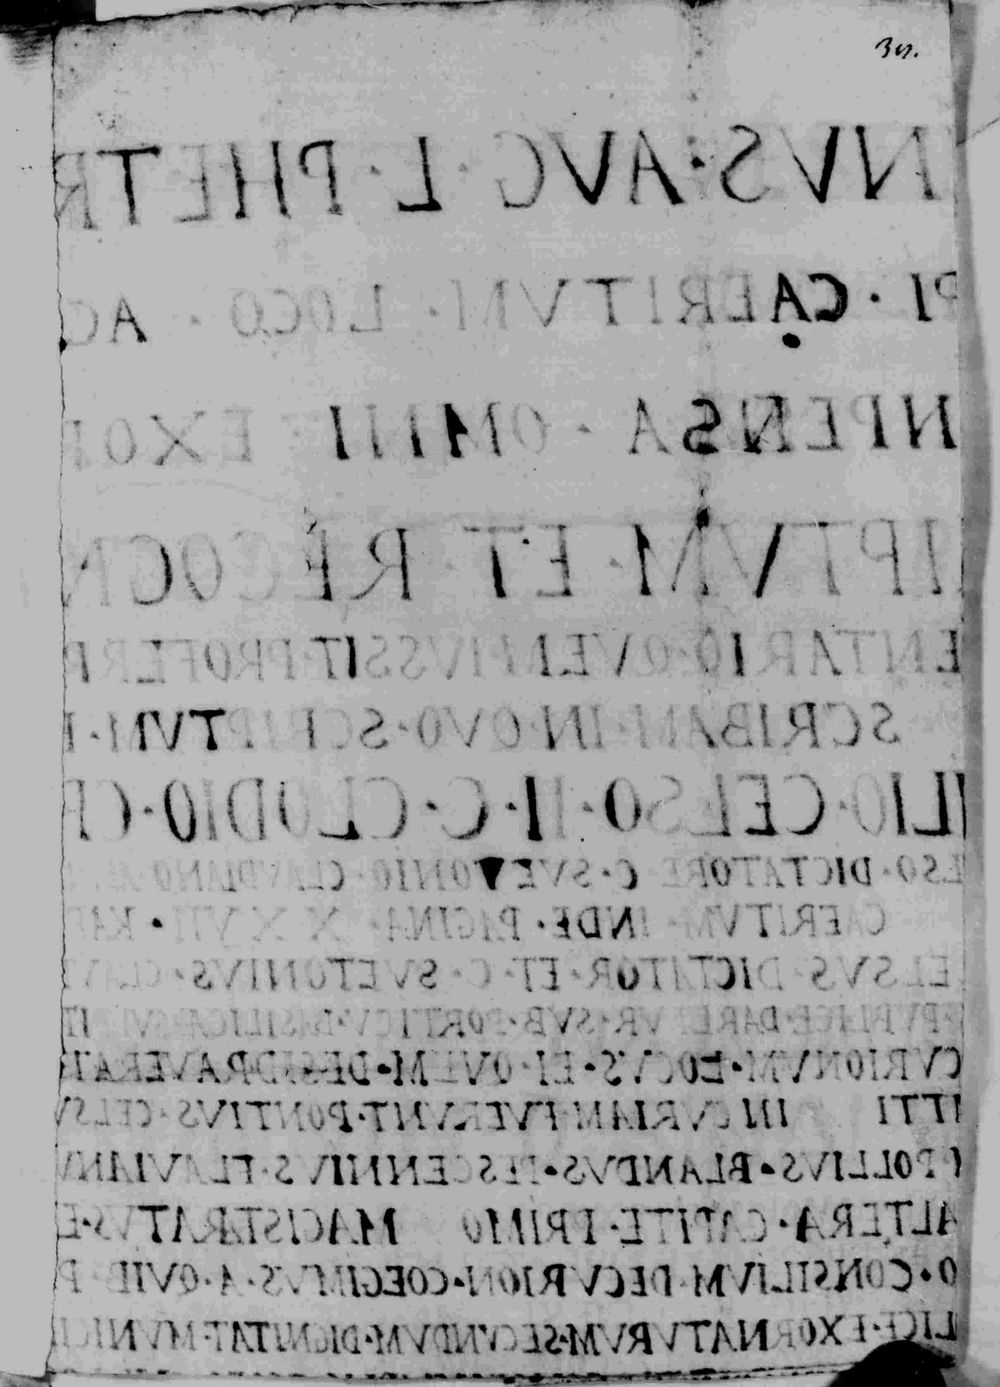 34.
NVS·AVG·L·PHETR
PI·CAERITVM·LOCO·AC
NPENSA·OMNI EXOR
IPTVM·ET·RECOGN
ENTARIO·QVEM·IVSSIT·PROFERR
SCRIBAM·IN·QVO·SCRIPTVM·
ILIO·CELSO·II·C·CLODIO·CR
ELSO·DICTATORE C·SVETONIO·CLAVDIANO
CAERITVM·INDE·PAGINA·XXVII·
ELSVS·DICTATOR·ET·C·SVETONIVS·CLAV
PVPLICE·DARETVR·SVB·PORTICV·BASILICAE
CVRIONVM·LOCVS·EI·QVEM·DESIDERAVERAT
ITTI IN CVRIAM FVERVNT·PONTIVS·CELSV
POLLIVS·BLANDVS·PESCENNIVS·FLAVIANV
ALTERA·CAPITE·PRIMO MAGISTRATVS·E
O·CONSILIVM·DECVRION·COEGIMVS·A·QVIB P
LICE·EXORNATVRVM·SECVNDVM·DIGNITAT·MVNICI